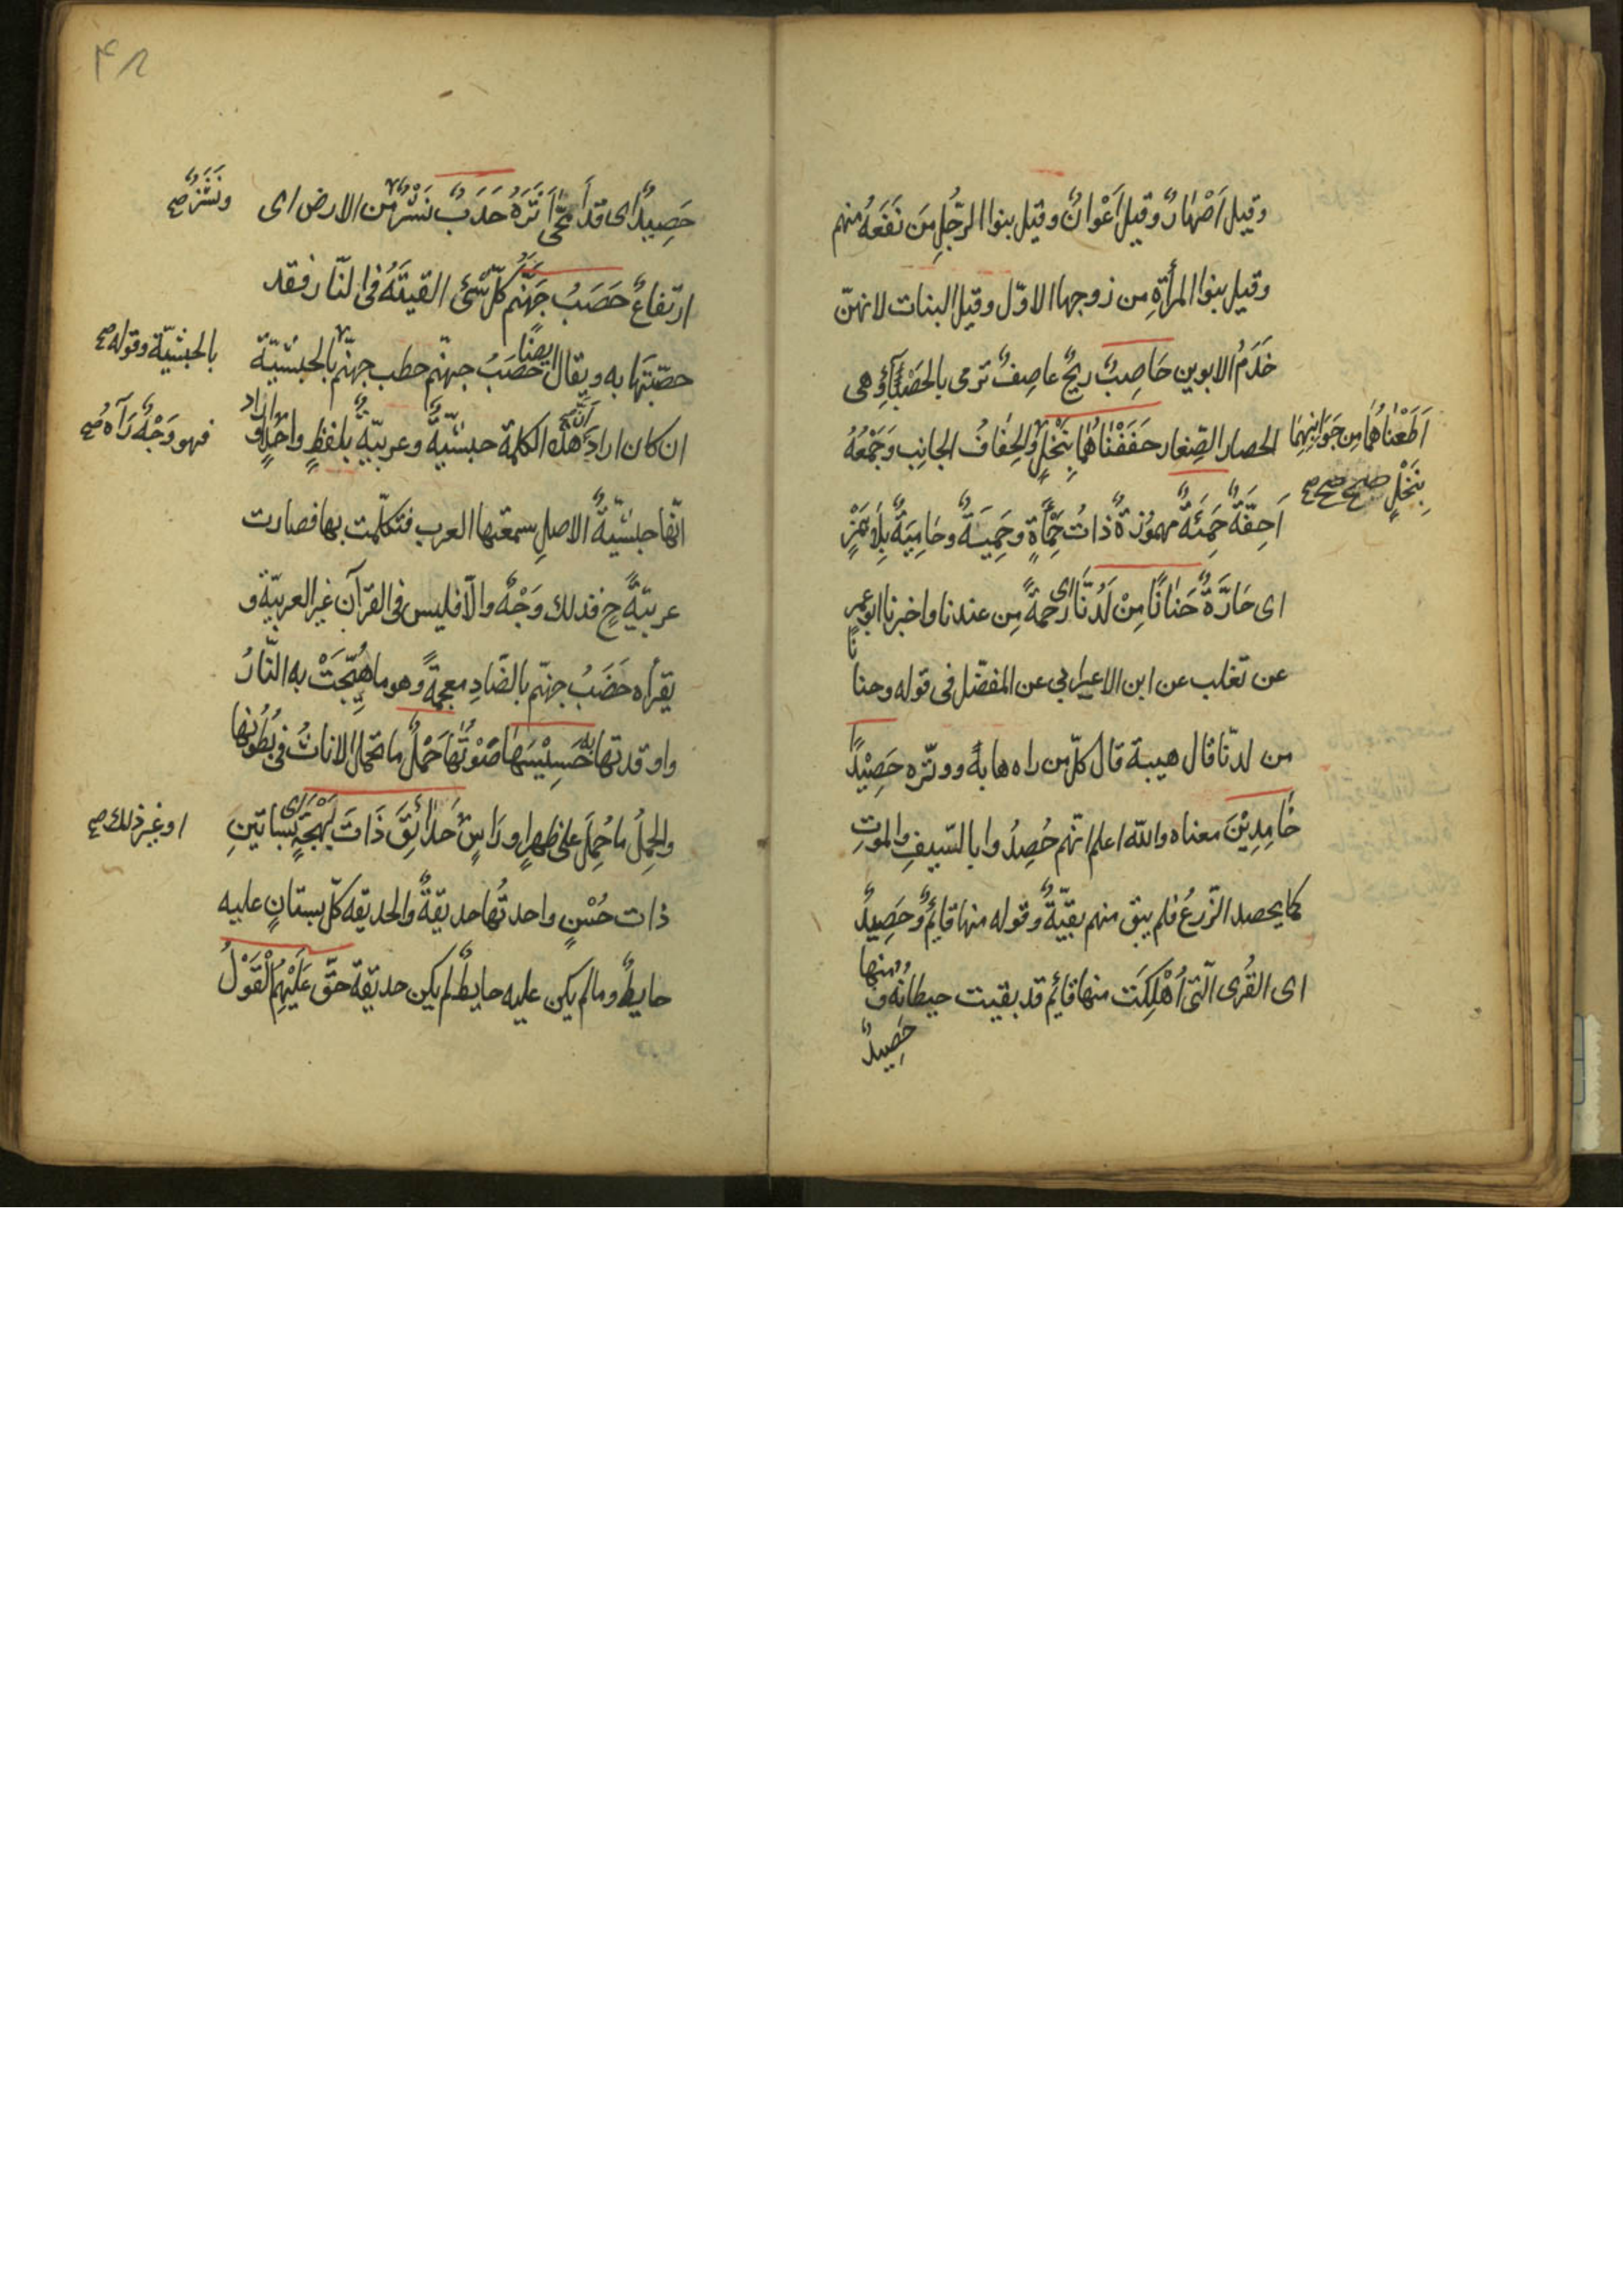 وقيل اَصْهارٌ وقيل اَعْوانٌ وقيل بنوا الرّجُلِ مَن نَفَعَهُ منهم
وقيل بنوا المرأةِ من زوجها الاوّل وقيل البنات لانهنّ
خَدَمُ الابوين حَاصِبٌ ريحٌ عاصِفٌ ترمى بالحَصْبَآءِ وهى
الحصار الصِّغار حَفَفْنَاهُمَا بِنَخْلٍ والحِفافُ الجانِب وَجَمْعُهُ
اَطَعْنَاهُمَا مِن جَوَانِبِهِمَا
بِنَخْلٍ صح
اَحِفَّةٌ حَمِئَةٌ مهموُزةٌ ذاتُ حَمْأَةٍ وحَمِيَةٌ وحَامِيَةٌ بِلاَ هَمْزٍ
اى حَارَّةٌ حَنانًا مِنْ لَدُنَّا اى رَحْمَةً مِن عندنا واخبرنا ابو عمر
عن ثغلب عن ابن الاعرابى عن المفضّل فى قوله وحنانا
من لدنّا قال هيبة قال كلّ من راه هابهُ ووقّره حَصِيْدًا
خَامِدِيْنَ معناه والله اعلم انّهم حُصِدُوا بالسّيفِ والموتِ
كما يحصد الزّرعُ فلم يبق منهم بقيّةٌ وقوله منها قائِمٌ وحَصِيدٌ
اى القُرى الّتى اُهْلِكَت منها قائِم قد بقيت حيطانُهُ ومنها
حَصِيدٌ
۴۸
حَصِيدٌ اى قد اَمَّحى اَثَرُهُ حَدَبٌ نَشْزٌ من الارض اى
ونَشَزٌ صح
ارتفاعٌ حَصَبُ جَهَنَّم كلّ شئ القيتَهُ فى النّار فقد
حصّبتَها به ويقال ايضًا حَصَبُ جهنّم حطب جهنّم بالحبشيّة
بالحبشيّة وقوله صح
ان كان اراد اَنَّ هذه الكلمة حبشيّةٌ وعربيّةٌ بلفظٍ واحدٍ او اراد
فهو وَجْهٌ رَآهُ صح
انّها حبشيّةُ الاصلِ سمعتها العرب فتكلّمت بها فصارت
عربيّةً ح فذلك وَجْهٌ والّا فليس فى القرآن غير العربيّة و
يقرأه حَضَبُ جهنّم بالضّادِ معجمةً وهو ما هُيِّجَتْ به النّارُ
واوقدتها به حَسِيْسَهَا صَوْتُهَا حَمْلٌ ما تحمل الاناثُ فى بُطُونِها
والحِملُ ما حُمِلَ على ظهرٍ او رَاسٍ حَدَائِقَ ذَاتَ بَهْجَةٍ اى بساتينِ
او غير ذلك صح
ذات حُسْنٍ واحدتُها حديقةٌ والحديقه كلّ بستانٍ عليه
حايطٌ وما لم يكن عليه حايطٌ لم يكن حديقة حقّ عَلَيْهِمُ الْقَوْلُ